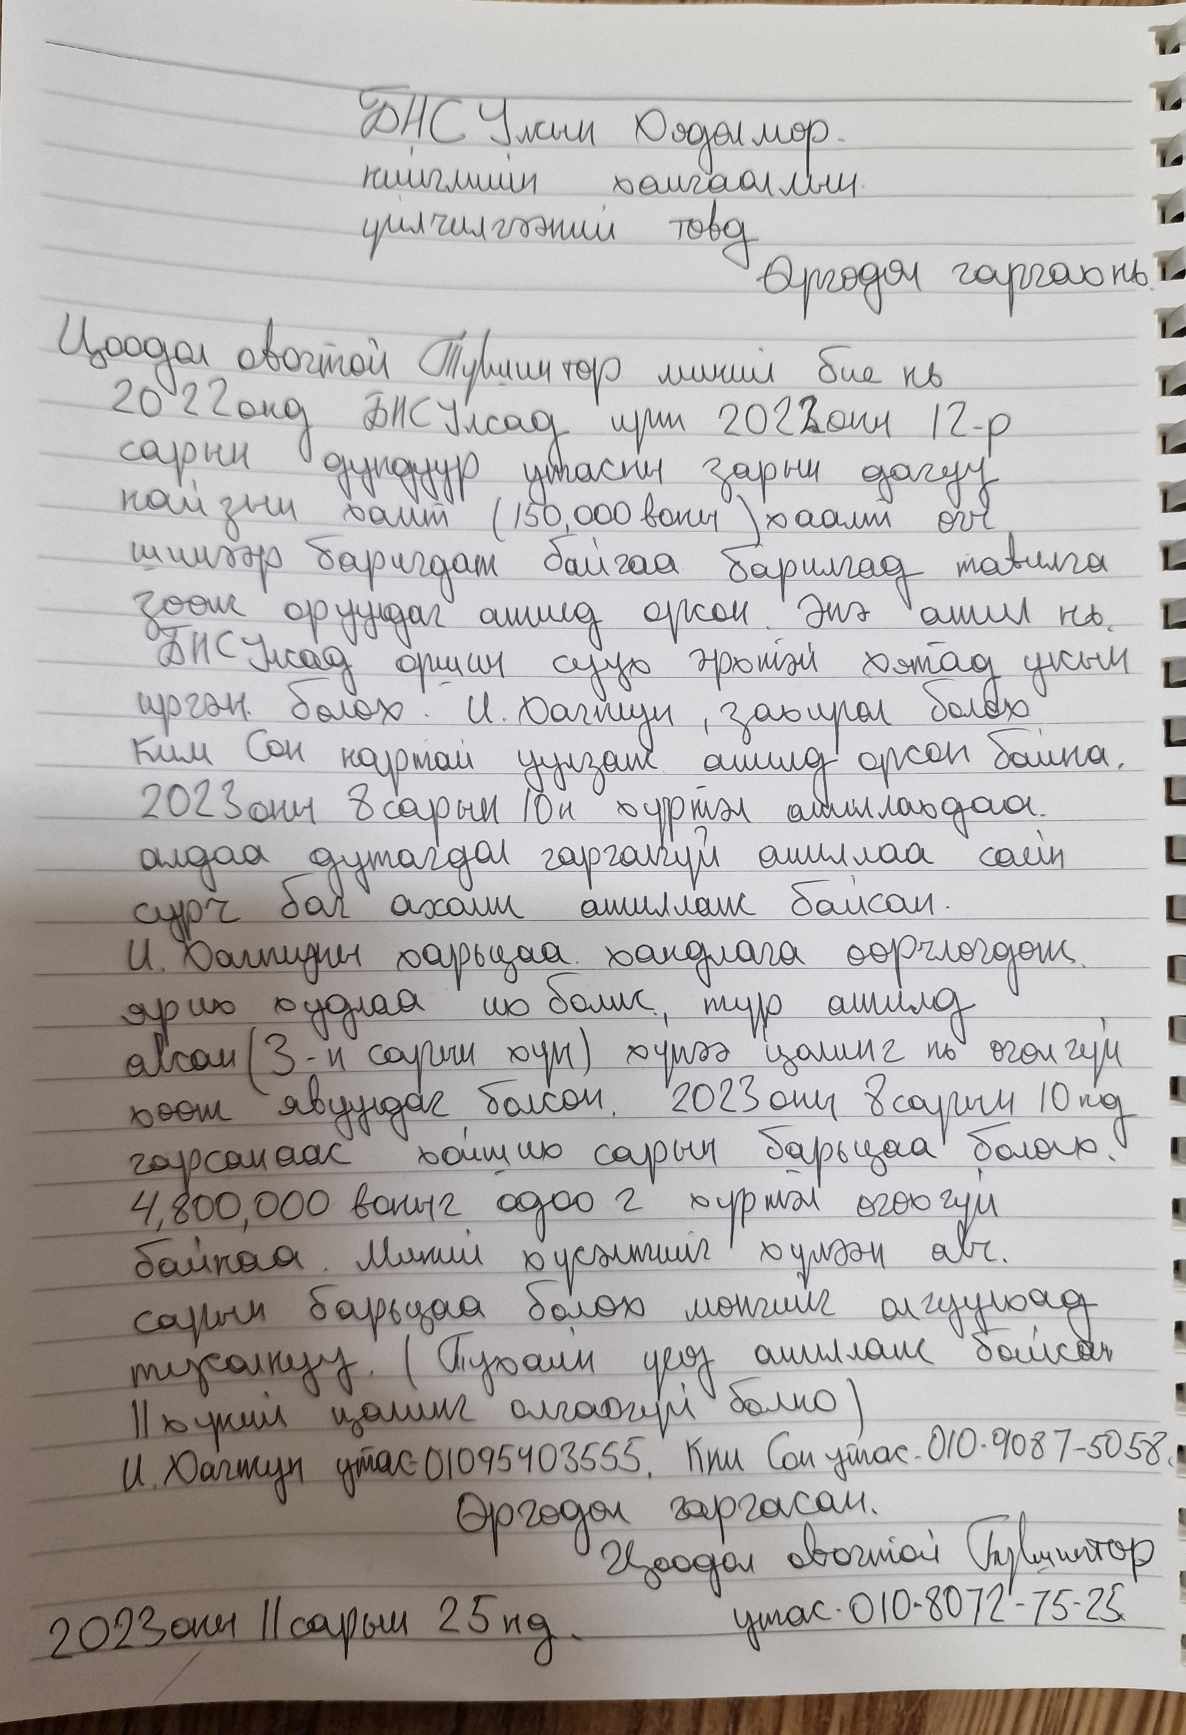 БНСУлсын Хөдөлмөр.
нийгмийн хамгааллын
үйлчилгээний төвд
Өргөдөл гаргах нь.
Цоодол овогтой Түвшинтөр миний бие нь
2022онд БНСУлсад ирж 2022оны 12-р
сарын дундуур утасны зарын дагуу
найзын хамт (150,000 воны) хаалт өгч
шинээр баригдаж байгаа барилгад тавилга
зөөж оруулдаг ажилд орсон. Энэ ажил нь.
БНСУлсад оршин суух эрхтэй хятад улсын
иргэн. болох. И. Хагжун, захирал болох
Ким Сон нартай уулзаж ажилд орсон байна.
2023оны 8сарын 10н хүртэл ажиллахдаа.
алдаа дутагдал гаргалгүй ажиллаа сайн
сурч баг ахалж ажиллаж байсан.
И. Хагжуны харьцаа. хандлага өөрчлөгдөж.
ярих худлаа их болж, түр ажилд
авсан (3-н сарын хүн) хүнээ цалинг нь өгөлгүй
хөөж явуулдаг болсон. 2023оны 8сарын 10нд
гарсанаас хойших сарын барьцаа болох.
4,800,000 воныг одоог хүртэл өгөөгүй
байнаа. Миний хүсэлтийг хүлээн авч.
сарын барьцаа болох мөнгийг олгуулхад
тусална уу. (Тухайн үед ажиллаж байсан
11хүний цалинг олгоогүй болно)
И. Хагжун утас-01095403555. Ким Сон утас-010-9087-5058.
Өргөдөл гаргасан.
Цоодол овогтой Түвшинтөр
2023оны 11сарын 25нд. утас-010-8072-75-25